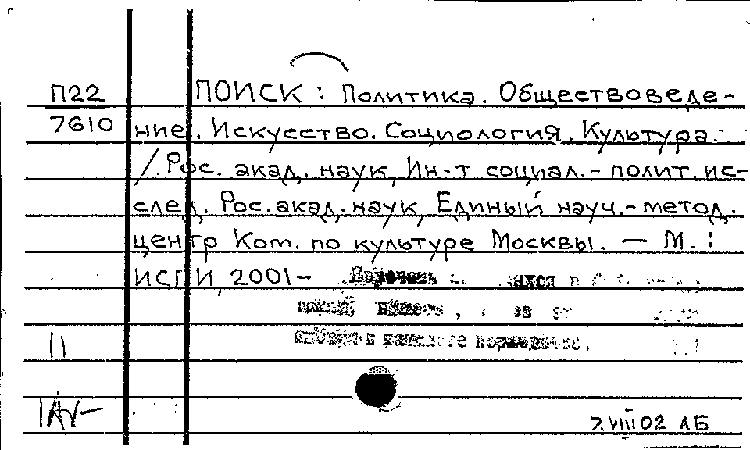 П22 ПОИСК : Политика. Обществоведе-
7610 ние. Искусство. Социология. Культура.
/ Рос. акад. наук, Ин-т социал.-полит. ис-
след. Рос. акад. наук, Единый науч.-метод.
центр Ком. по культуре Москвы. — М. :
ИСПИ, 2001-
11
7.VIII 02 ЛБ